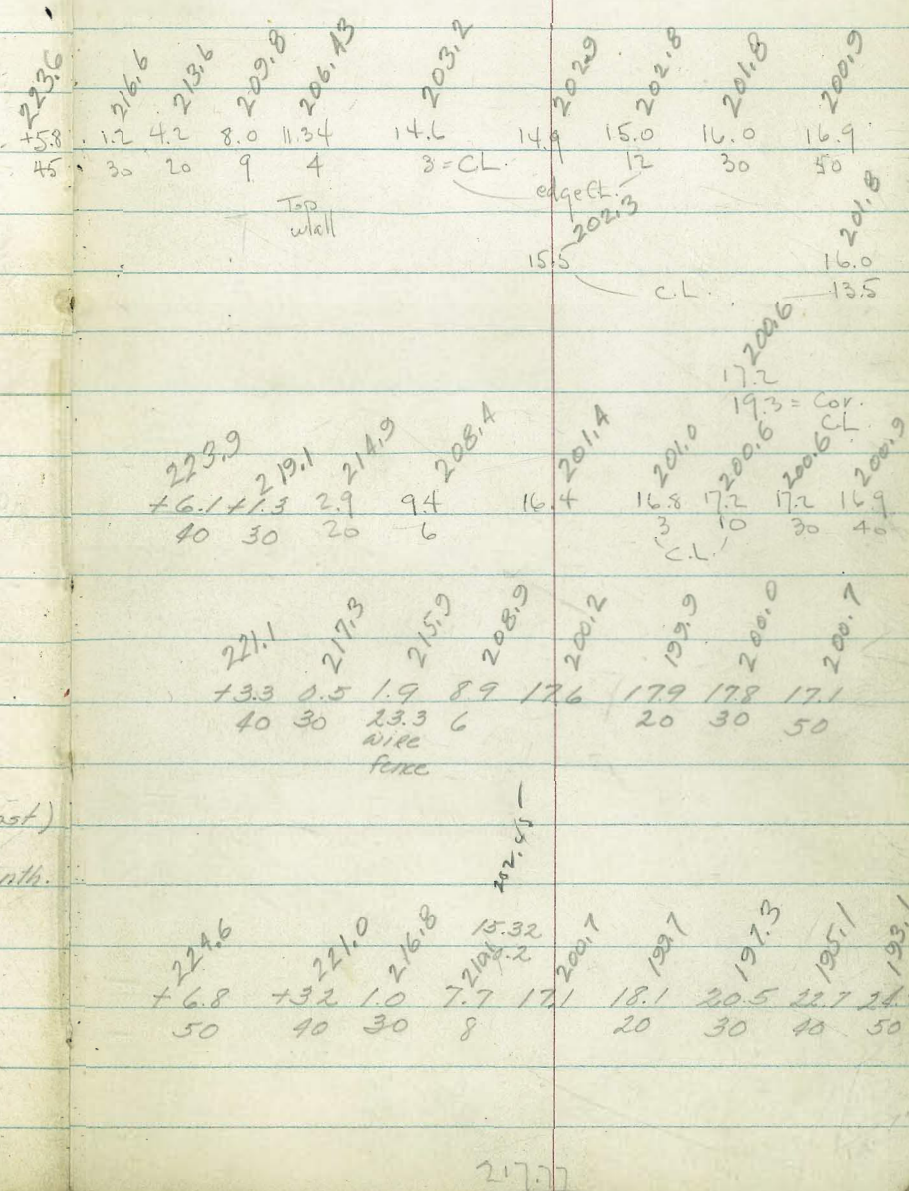 223.6 216.6 213.6 209.8 206.43 203.2 202.9 202.8 201.8 200.9
+5.8 1.2 4.2 8.0 11.34 14.6 14.9 15.0 16.0 16.9
45 30 20 9 4 3 = C.L. 12 30 50
edge CL.
Top
wall
202.3 201.8
15.5 16.0
C.L. 13.5
200.6
17.2
19.3 = Cor.
C.L.
223.9 219.1 214.9 208.4 201.4 201.0 200.6 200.6 200.9
+6.1 +1.3 2.9 9.4 16.4 16.8 17.2 17.2 16.9
40 30 20 6 3 10 30 40
C.L.
221.1 217.3 215.9 208.9 200.2 199.9 200.0 200.7
+3.3 0.5 1.9 8.9 17.6 17.9 17.8 17.1
40 30 23.3 6 20 30 50
wire
fence
ast)
202.45
nth.
15.32
224.6 221.0 216.8 200.7 199.7 197.3 195.1 193.1
+6.8 +3.2 1.0 7.7 17.1 18.1 20.5 22.7 24.
50 40 30 8 20 30 40 50
217.77